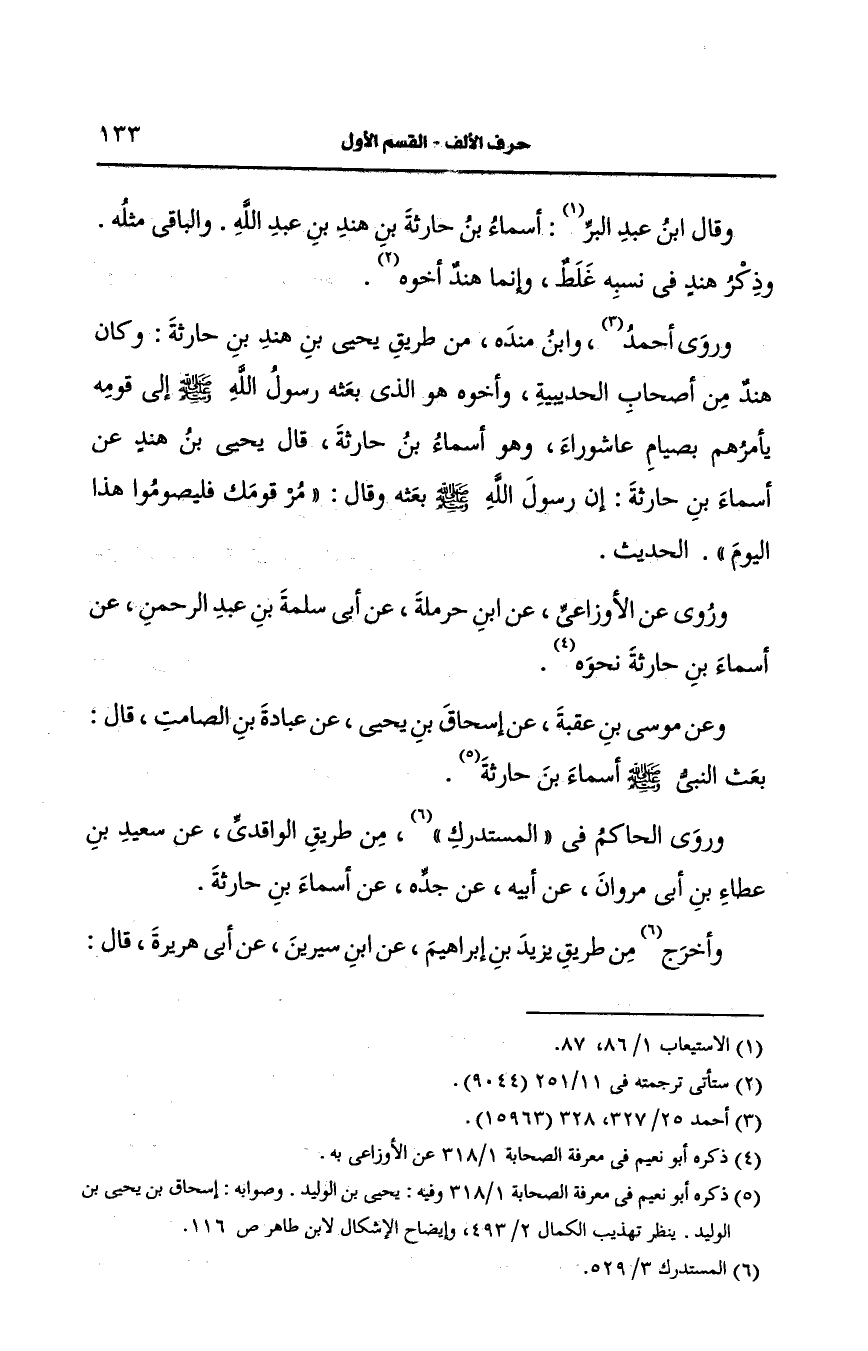 حرف الألف - القسم الأول ١٣٣
وقال ابنُ عبدِ البرِّ(١) : أسماءُ بنُ حارثةَ بنِ هندِ بنِ عبدِ اللَّهِ . والباقى مثلُه .
وذِكْرُ هندٍ فى نسبِه غَلَطٌ ، وإنما هندٌ أخوه(٢) .
وروَى أحمدُ(٣) ، وابنُ مندَه ، من طريقِ يحيى بنِ هندِ بنِ حارثةَ : وكان
هندٌ مِن أصحابِ الحديبيةِ ، وأخوه هو الذى بعَثه رسولُ اللَّهِ ﷺ إلى قومِه
يأمرُهم بصيامِ عاشوراءَ ، وهو أسماءُ بنُ حارثةَ ، قال يحيى بنُ هندٍ عن
أسماءَ بنِ حارثةَ : إن رسولَ اللَّهِ ﷺ بعَثه وقال : « مُرْ قومَك فليصومُوا هذا
اليومَ » . الحديث .
ورُوى عن الأوزاعىِّ ، عن ابنِ حرملةَ ، عن أبى سلمةَ بنِ عبدِ الرحمنِ ، عن
أسماءَ بنِ حارثةَ نحوَه(٤) .
وعن موسى بنِ عقبةَ ، عن إسحاقَ بنِ يحيى ، عن عبادةَ بنِ الصامتِ ، قال :
بعَث النبىُّ ﷺ أسماءَ بنَ حارثةَ(٥) .
وروَى الحاكمُ فى « المستدركِ »(٦) ، مِن طريقِ الواقدىِّ ، عن سعيدِ بنِ
عطاءِ بنِ أبى مروانَ ، عن أبيه ، عن جدِّه ، عن أسماءَ بنِ حارثةَ .
وأخرَج(٦) مِن طريقِ يزيدَ بنِ إبراهيمَ ، عن ابنِ سيرينَ ، عن أبى هريرةَ ، قال :
(١) الاستيعاب ١/ ٨٦، ٨٧.
(٢) ستأتى ترجمته فى ٢٥١/١١ (٩٠٤٤) .
(٣) أحمد ٢٥/ ٣٢٧، ٣٢٨ (١٥٩٦٣) .
(٤) ذكره أبو نعيم فى معرفة الصحابة ٣١٨/١ عن الأوزاعى به .
(٥) ذكره أبو نعيم فى معرفة الصحابة ٣١٨/١ وفيه : يحيى بن الوليد . وصوابه : إسحاق بن يحيى بن
الوليد . ينظر تهذيب الكمال ٢/ ٤٩٣، وإيضاح الإشكال لابن طاهر ص ١١٦.
(٦) المستدرك ٣/ ٥٢٩.